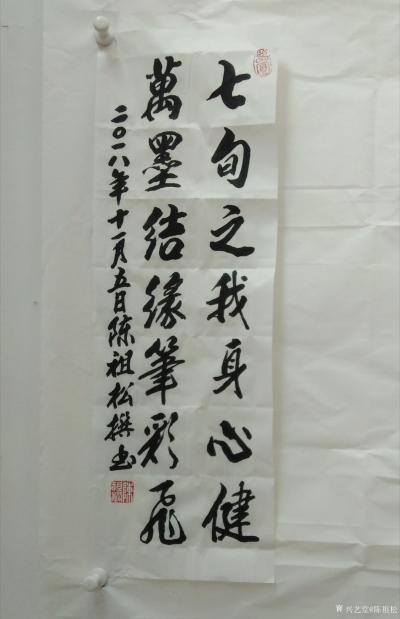 七旬之我身心健
萬墨结缘筆彩飛
二〇一八年十一月五日陈祖松撰书
兴艺堂@陈祖松